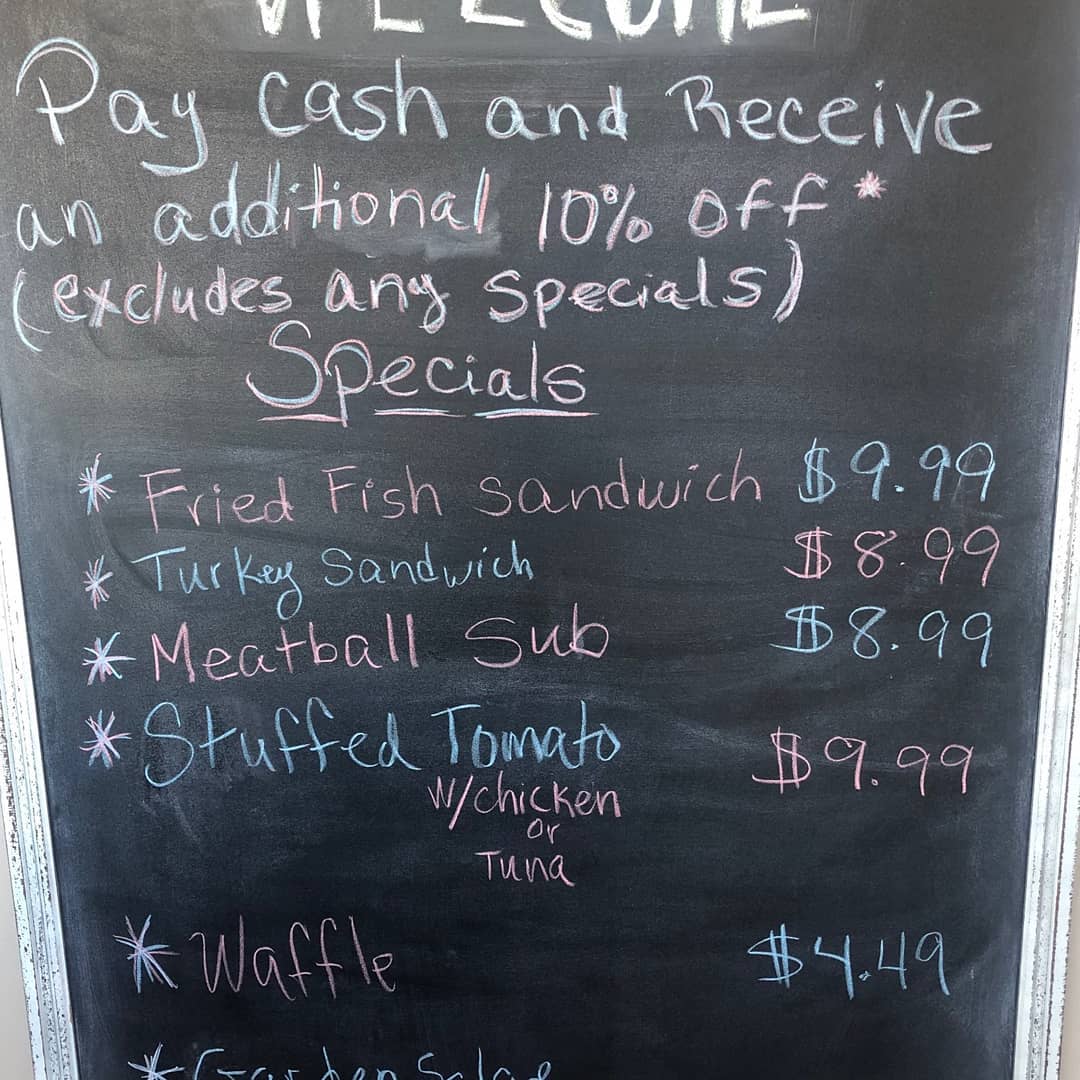 WELCOME
Pay Cash and Receive
an additional 10% off *
(excludes any specials)
Specials
* Fried Fish Sandwich $9.99
* Turkey Sandwich $8.99
* Meatball Sub $8.99
* Stuffed Tomato $9.99
w/chicken
or
Tuna
* Waffle $4.49
* Garden Salad